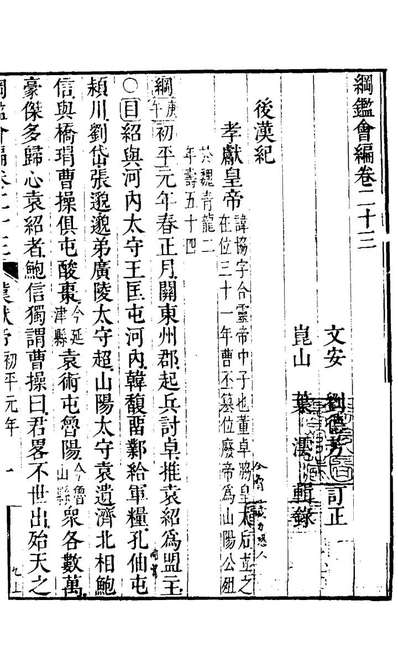 綱鑑會編卷二十三
文安 劉德芳 訂正
崑山 葉澐 輯錄
後漢紀
孝獻皇帝 諱協字合靈帝中子也董卓將皇后立之在位三十一年曹丕篡位廢帝爲山陽公殂
於魏青龍二年壽五十四
綱 庚午 初平元年春正月關東州郡起兵討卓推袁紹爲盟主
○目紹與河內太守王匡屯河內韓馥畱鄴給軍糧孔伷屯
潁川劉岱張邈邈弟廣陵太守超山陽太守袁遺濟北相鮑
信與橋瑁曹操俱屯酸棗 今延津縣 袁術屯魯陽 今魯山縣 眾各數萬
豪傑多歸心袁紹者鮑信獨謂曹操曰君畧不世出殆天之
綱鑑會編卷二十三 漢獻帝 初平元年 一